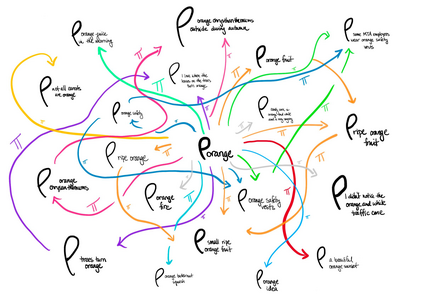 orange juice
in the morning
orange chrysanthemums
outside during autumn
some MTA employees
wear orange safety
vests
not all carrots
are orange
I love when the
leaves on the trees
turn orange
orange fruit
orange safety
ripe orange
orange
ripe orange
fruit
orange
chrysanthemums
orange
fires
orange safety
vests
I didn't notice the
orange and white
traffic cone
trees turn
orange
small ripe
orange fruit
orange butternut
squash
orange
idea
a beautiful
orange sunset